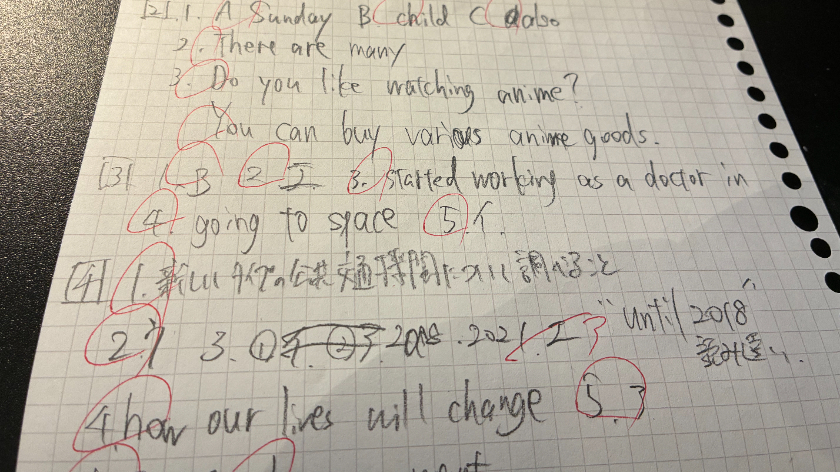 [2] 1. A Sunday B child C also
2. There are many
3. Do you like watching anime?
You can buy various anime goods.
[3] 1. B 2 エ 3. started working as a doctor in
4. going to space 5 イ.
[4] 1. 新しいタイプの公共交通機関について調べること
2. ウ 3. 2018 . 2021. エ ウ "until 2018"
4. how our lives will change 5. ウ